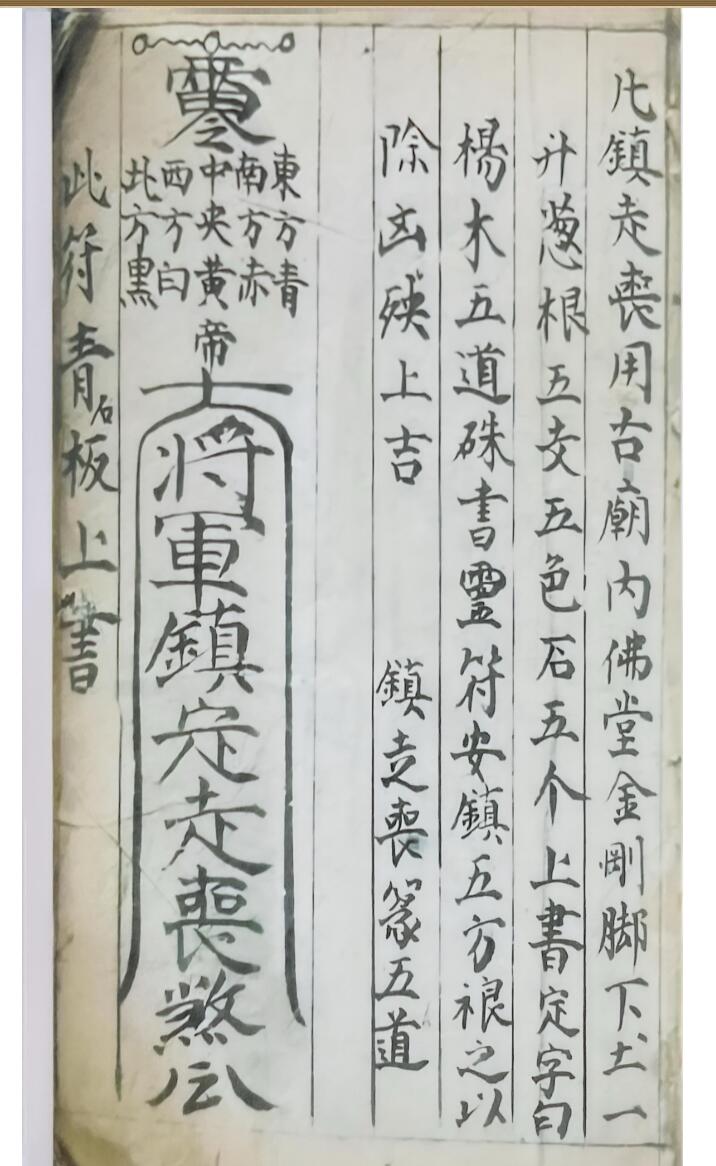 凡鎮走喪用古廟内佛堂金剛脚下土一
升葱根五支五色石五个上書定字向
楊木五道硃書靈符安鎮五方禳之以
除凶殃上吉
鎮走喪篆五道
東方青
南方赤
中央黄帝
西方白
北方黑
将軍鎮定走喪煞
此符青石板上書